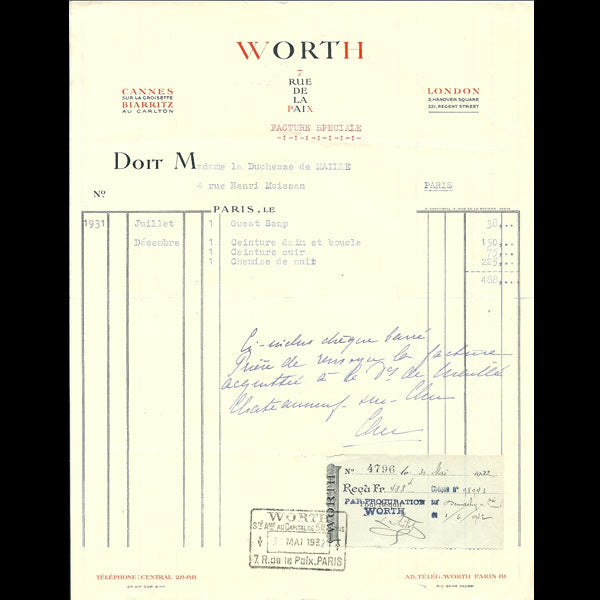 WORTH
7
RUE
DE
LA
PAIX
CANNES
SUR LA CROISETTE
BIARRITZ
AU CARLTON
LONDON
3, HANOVER SQUARE
221, REGENT STREET
FACTURE SPECIALE
DOIT Madame la Duchesse de MAILLE
4 rue Henri Moissan PARIS
No
PARIS, LE
1931 Juillet 1 Guest Soap 38,..
Décembre 1 Ceinture daim et boucle 150,..
1 Ceinture cuir 75,..
1 Chemise de nuit 225,..
488,..
Ci-inclus chèque barré
Prière de renvoyer la facture
acquittée à la Dsse de Maillé
Chateauneuf-sur-Cher
Cher
WORTH
No 4796 le Mai
Reçu Fr. 488
PAR PROCURATION
WORTH
WORTH
MAI 1932
7, R. de la Paix, PARIS
TÉLÉPHONE: CENTRAL 26-88
AD. TÉLÉG. WORTH PARIS 81